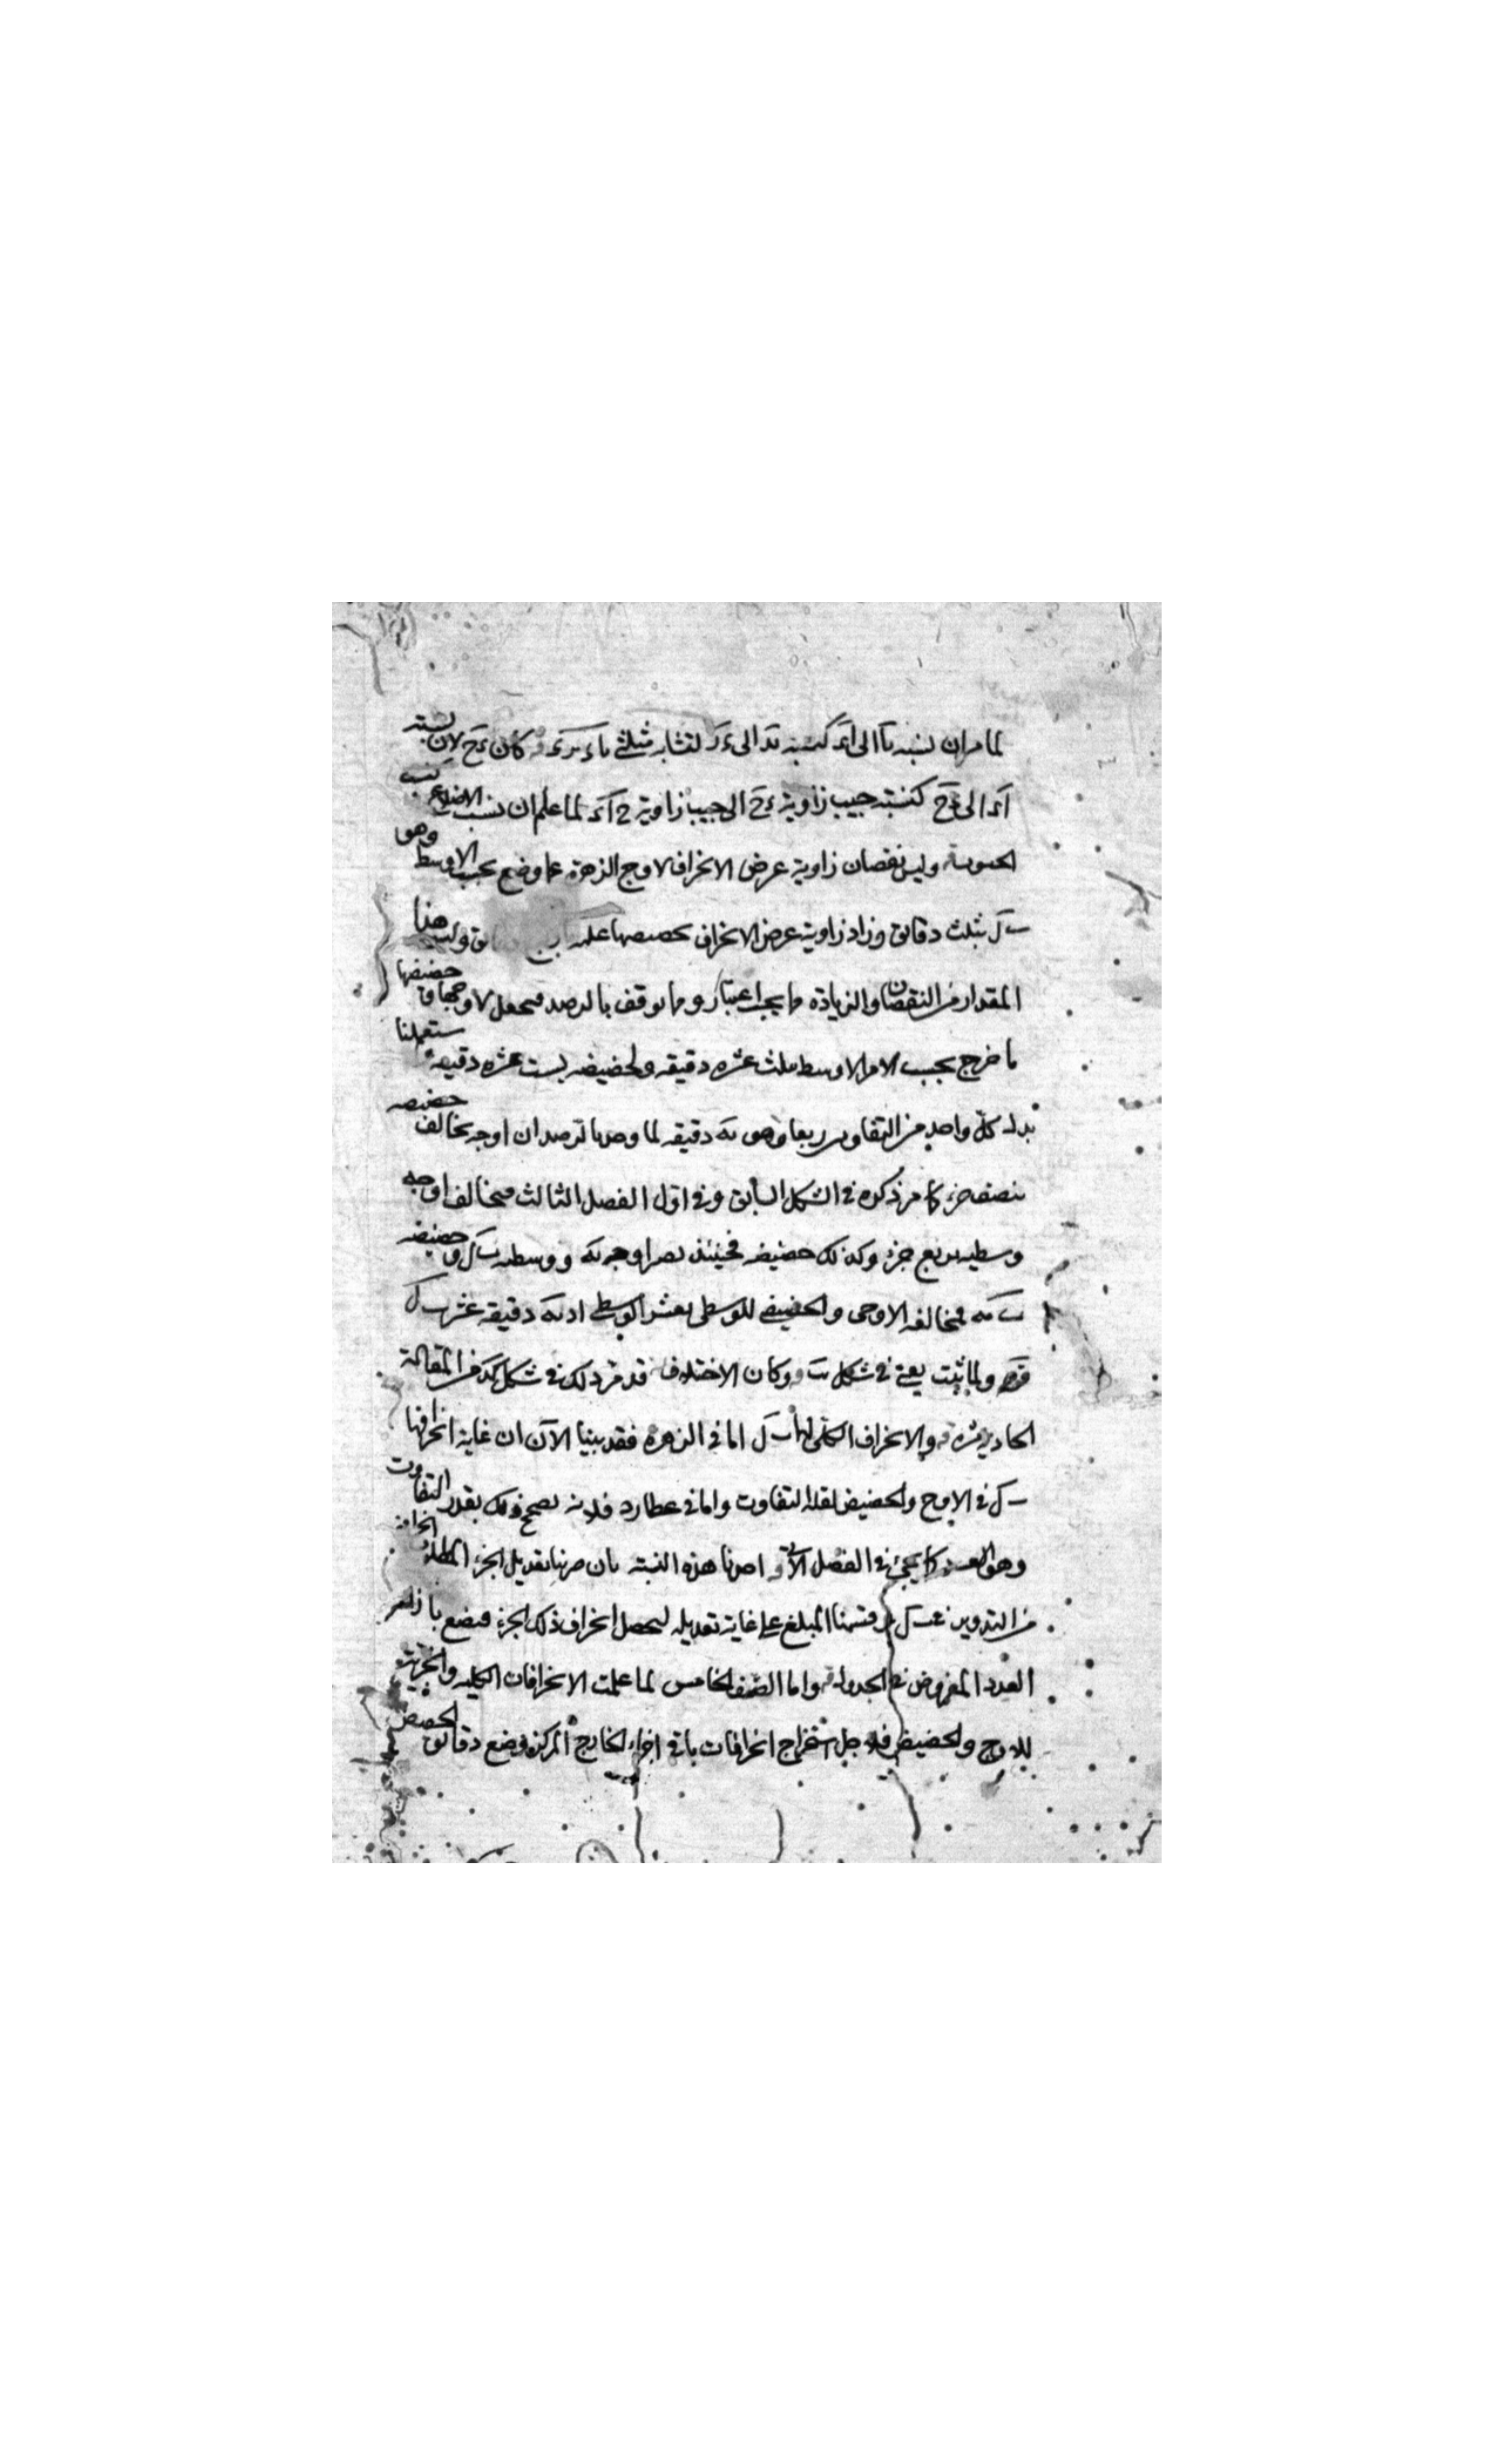 لما مر ان نسبة با الى اء كنسبة بد الى ءر لتشابه مثلثي باء بدء قه كان ءح لان نسبة
اء الى ءح كنسبة جيب زاوية ءح الى جيب زاوية ح اء لما علم ان نسب الاضلاع كنسب
الجيوب قه وليس نقصان زاوية عرض الانحراف لاوج الزهرة عما وضع بحسب الاوسط وهو
ب ل بثلث دقائق وزاد زاوية عرض الانحراف لحضيضها عليه وليس هذا
المقدار من النقصان والزيادة مما يجب اعتباره وما يوقف بالرصد فيجعل لاوجها وحضيضها
ما خرج بحسب الامر الاوسط بثلث عشره دقيقه ولحضيضه بست عشره دقيقه استعملنا
بدل كل واحد من التفاوتين ربعا وهو يه دقيقه لما وجد بالرصد ان اوجه يخالف حضيضه
بنصف جزء كما مر ذكره في الشكل السابق وفي اول الفصل الثالث فيخالف اوجه
وسطيه بربع جزء وكذلك حضيضه فحينئذ يصير اوجه يه ووسطه ب ل وحضيضه
ب مه فيخالفه الاوجي والحضيضي للوسطي بعشر الوسطي اذ يه دقيقه عشر ب ل
قوله ولما ثبت يعني في شكل ب قه وكان الاختلاف قد مر ذلك في شكل كد من المقالة
الحادية عشره قه والانحراف الكلي لها ب ل اما في الزهرة فقد بينا الآن ان غاية انحرافها
ب ل في الاوج والحضيض لقلة التفاوت واما في عطارد فلانه يصحح ذلك بقدر التفاوت
وهو العشر كما يجيء في الفصل الآتي قه اجرنا هذه النسبة بان ضربنا تعديل الجزء المطلوب انحرافه
من التدوير في ب ل وقسمنا المبلغ على غاية تعديله ليحصل انحراف ذلك الجزء فيضع بازائه
العدد المفروض في الجدول قه واما الصف الخامس لما علمت الانحرافات الكلية والجزئية
للاوج والحضيض فلاجل استخراج انحرافات باقي اجزاء الخارج المركز وضع دقائق الحصص